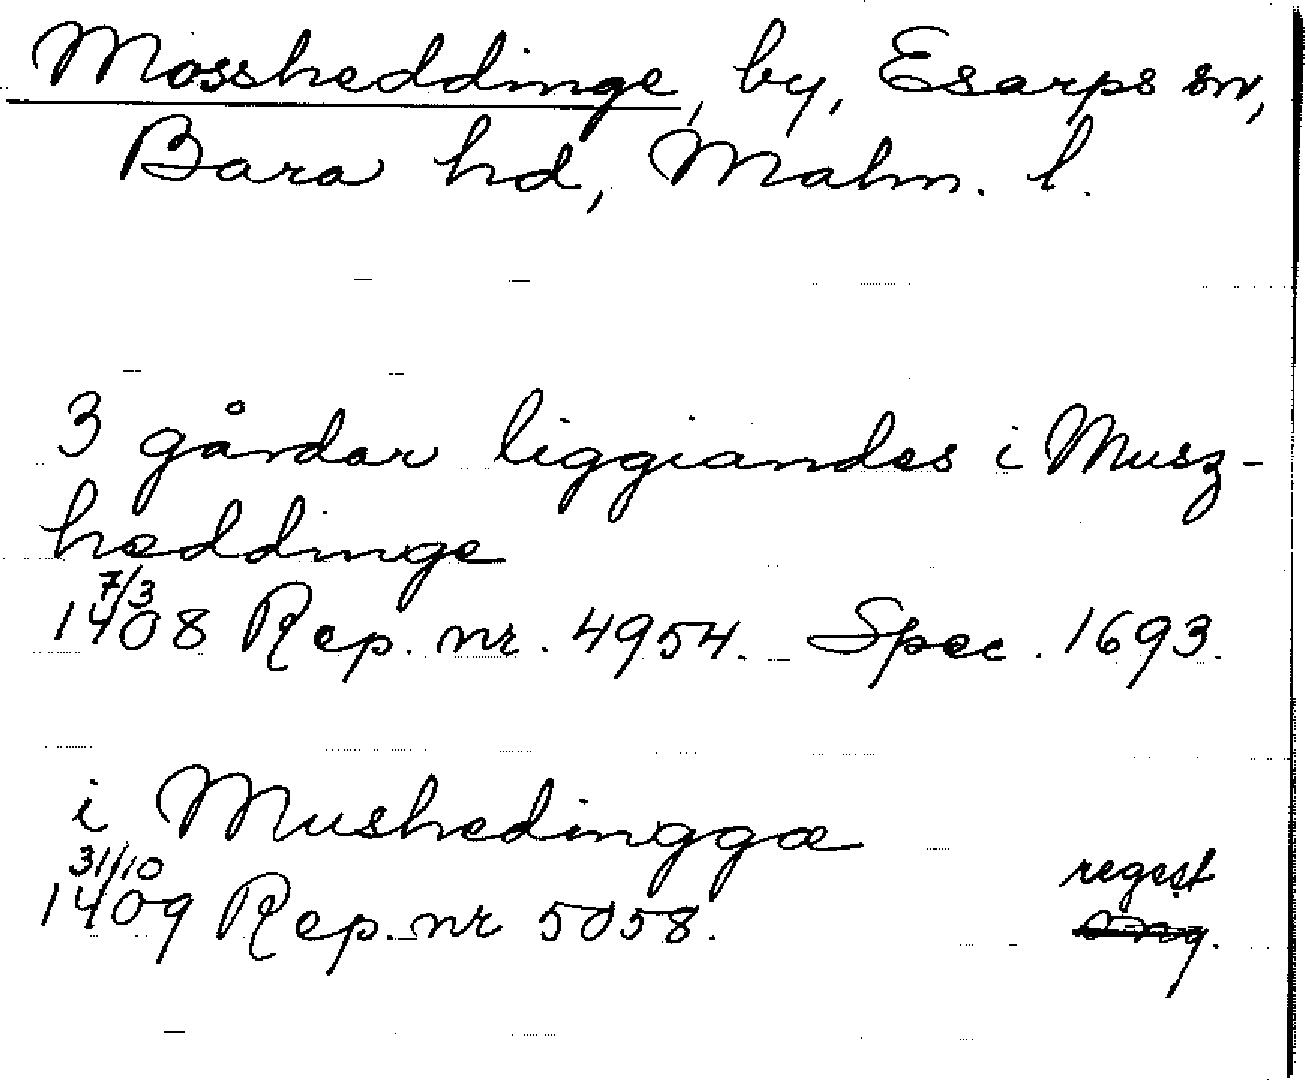 Mossheddinge, by, Esarps sn,
Bara hd, Malm. l.
3 gårdar liggiandes i Musz-
heddinge
7/3
1408 Rep. nr. 4954. Spec. 1693.
i Mushedinggæ
31/10
1409 Rep. nr 5058.
regest